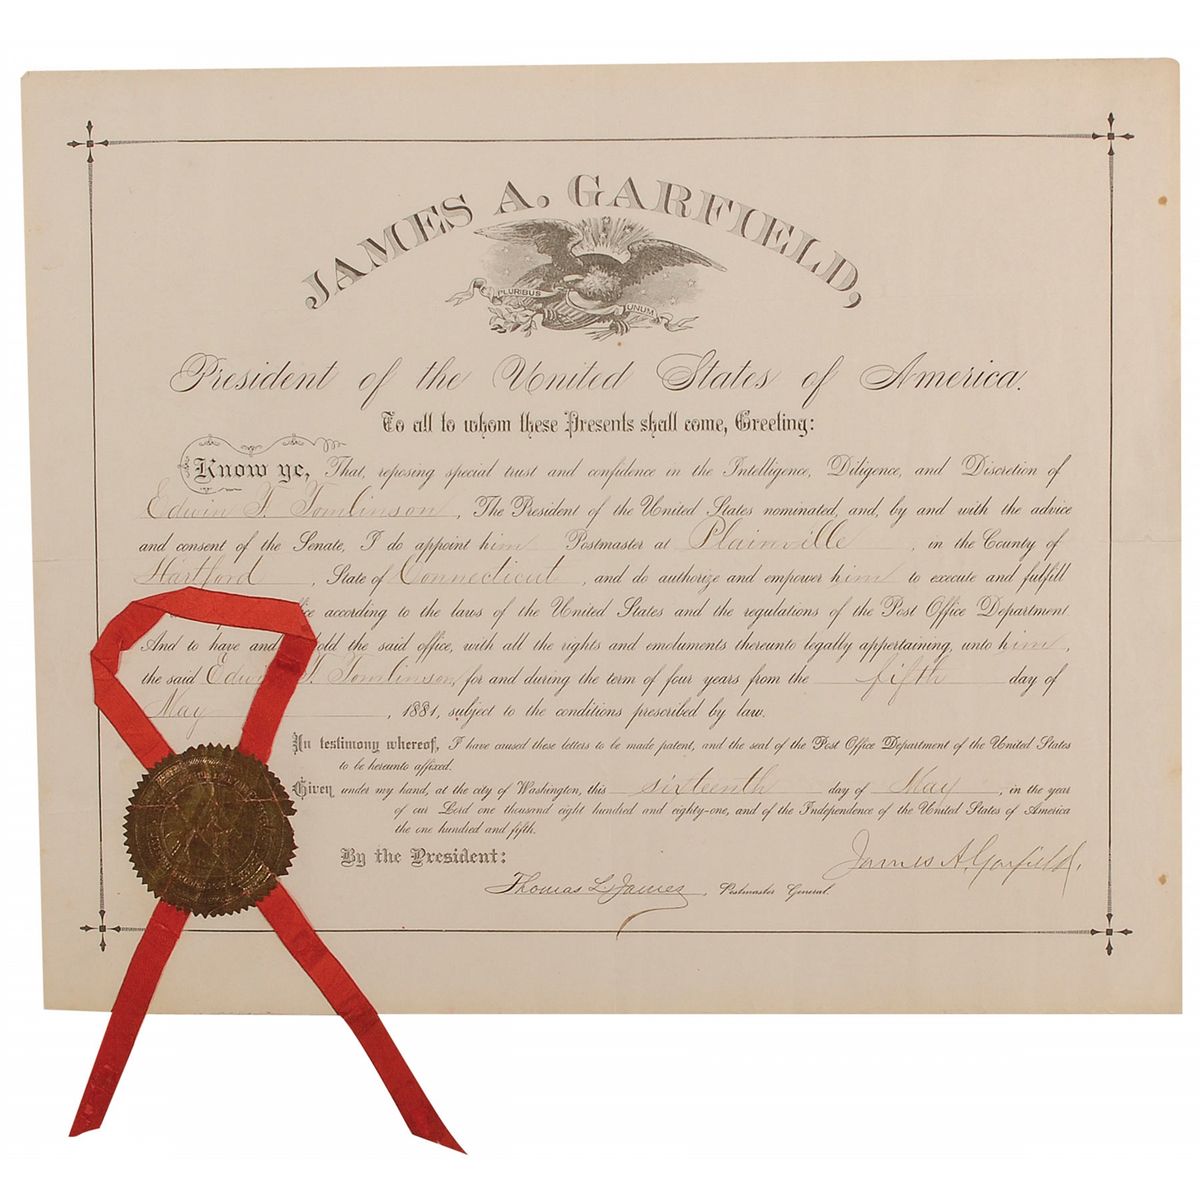 JAMES A. GARFIELD,
PLURIBUS UNUM
President of the United States of America.
To all to whom these Presents shall come, Greeting:
Know ye, That, reposing special trust and confidence in the Intelligence, Diligence, and Discretion of
Edwin F. Tomlinson, The President of the United States nominated, and, by and with the advice
and consent of the Senate, I do appoint him Postmaster at Plainville, in the County of
Hartford, State of Connecticut, and do authorize and empower him to execute and fulfill
according to the laws of the United States and the regulations of the Post Office Department
And to have and hold the said office, with all the rights and emoluments thereunto legally appertaining, unto him,
the said Edwin F. Tomlinson, for and during the term of four years from the fifth day of
May, 1881, subject to the conditions prescribed by law.
In testimony whereof, I have caused these letters to be made patent, and the seal of the Post Office Department of the United States
to be hereunto affixed.
Given under my hand, at the city of Washington, this sixteenth day of May, in the year
of our Lord one thousand eight hundred and eighty-one, and of the Independence of the United States of America
the one hundred and fifth.
By the President:
James A. Garfield.
Thomas L. James, Postmaster General.